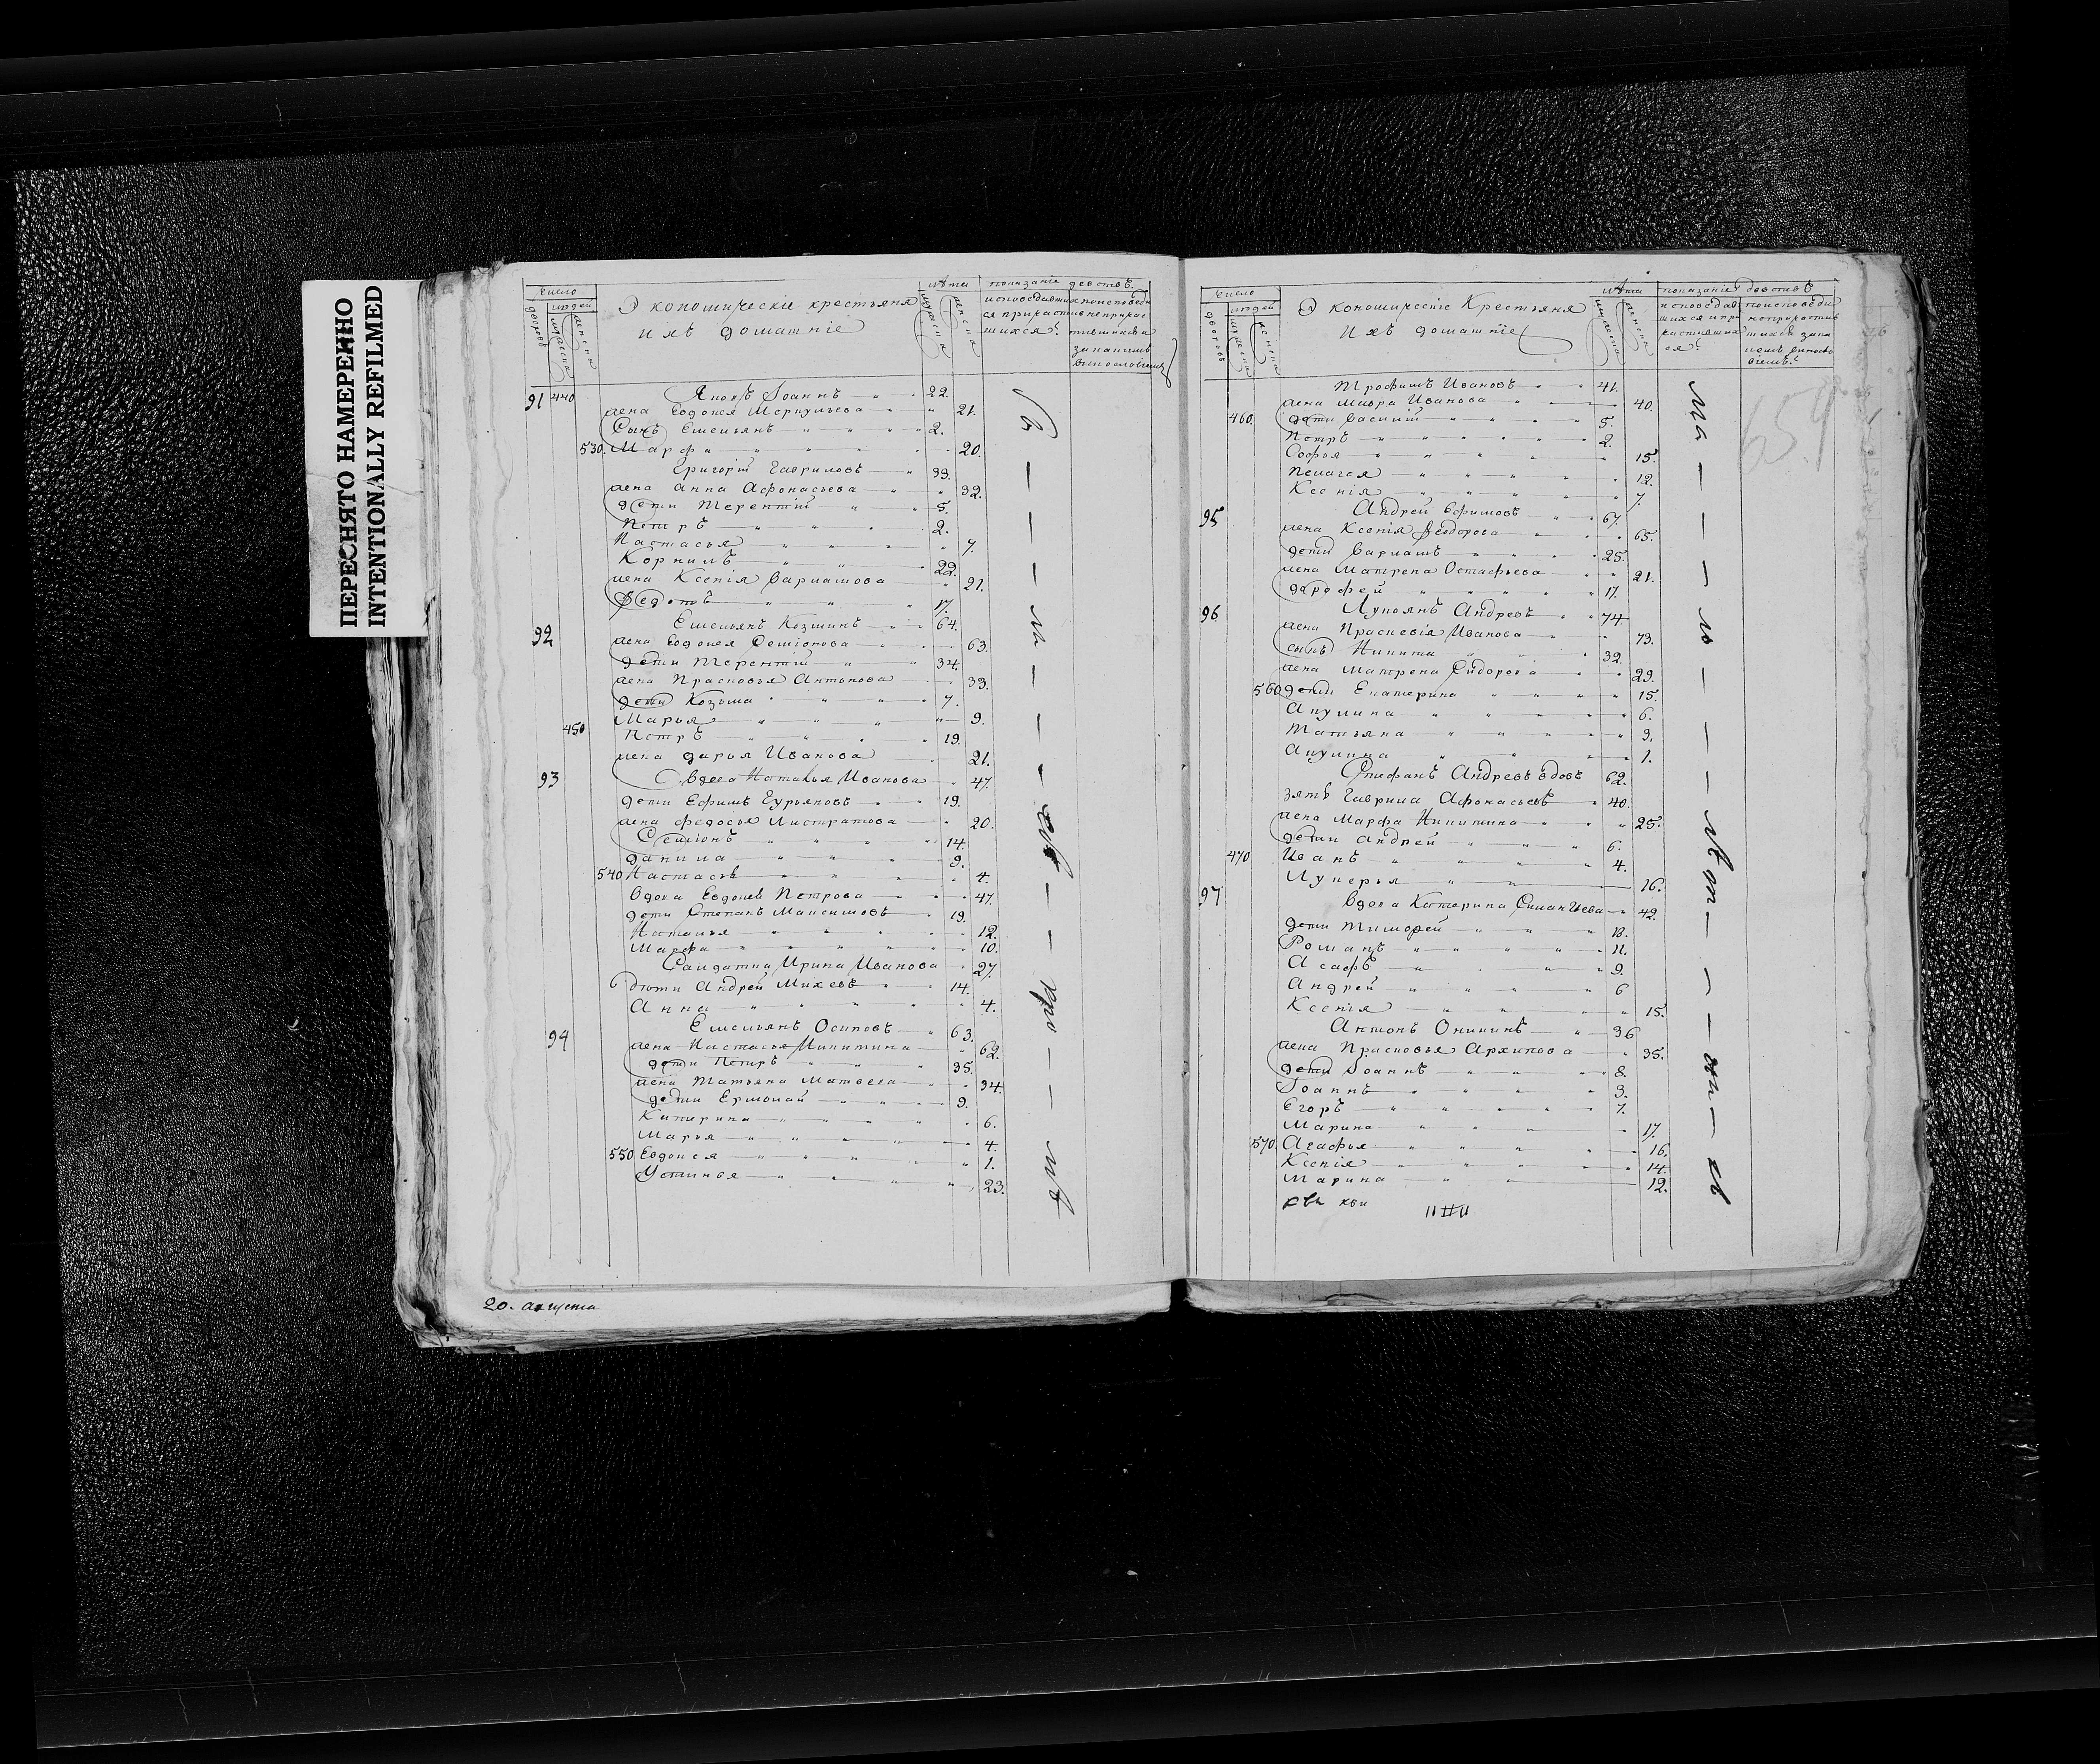 ПЕРЕСНЯТО НАМЕРЕННО
INTENTIONALLY REFILMED
Число
людей
дворовъ
мужеска
женска
Экономическіе крестьяня
Ихъ домашніе
лѣта
мужеска
женска
показаніе действъ
91 440 Яковъ Іоаннъ 22.
жена Евдокея Меркульева 21.
Сынъ Емельянъ 2.
530. Марфа 20.
Григорій Гавриловъ 33.
жена Анна Афонасьева 32.
дети Терентій 5.
Петръ 2.
Настасья 7.
Корнилъ 22.
жена Ксенія Варламова 21.
Федотъ 17.
92 Емельянъ Козминъ 64.
жена Евдокея Семіонова 63.
дети Терентій 34.
жена Прасковья Антонова 33.
дети Козьма 7.
Марья 9.
450 Петръ 19.
жена дарья Иванова 21.
93 Вдова Наталья Иванова 47.
дети Ефимъ Гурьяновъ 19.
жена федосья Листратова 20.
Семіонъ 14.
данила 9.
540 Настасья 4.
вдова Евдокея Петрова 47.
дети Степанъ Максимовъ 19.
Наталья 12.
Марфа 10.
Салдатка Ирина Иванова 27.
6 дѣти Андрей Михеевъ 14.
Анна 4.
94 Емельянъ Осиповъ 63.
жена Настасья Никитина 62.
дети Петръ 35.
жена Татьяна Матвеева 34.
дети Ермолай 9.
Катерина 6.
Марья 4.
550 Евдокея 1.
Устинья 23.
20. августа
Число
людей
дворовъ
мужеска
женска
Экономическіе Крестьяня
Ихъ домашніе
лѣта
мужеска
женска
показаніе действъ
Трофимъ Ивановъ 41.
жена Мавра Иванова 40.
460. дети Василій 5.
Петръ 2.
Софья 15.
Пелагея 12.
Ксенія 7.
95 Андрей Ефимовъ 67.
жена Ксенія Феодорова 65.
дети Варламъ 25.
жена Матрена Остафьева 21.
дарофей 17.
96 Лукоянъ Андреевъ 74
жена Праскевія Иванова 73.
сынъ Никита 32.
жена Матрена Сидорова 29.
560 дети Екатерина 15.
Акулина 6.
Татьяна 3.
Акулина 1.
Стефанъ Андреевъ вдовъ 62.
зять Гаврила Афонасьевъ 40.
жена Марфа Никитина 25.
дети Андрей 6.
470 Иванъ 4.
Лукерья 16.
97 Вдова Катерина 42.
дети Тимофей 13.
Романъ 11.
Асафъ 9.
Андрей 6
Ксенія 15.
Антонъ Оникинъ 36
жена Прасковья Архипова 35.
дети Іоаннъ 8.
Іоаннъ 3.
Егоръ 7.
Марина 17.
570. Агафья 16.
Ксенія 14.
Марина 12.
659